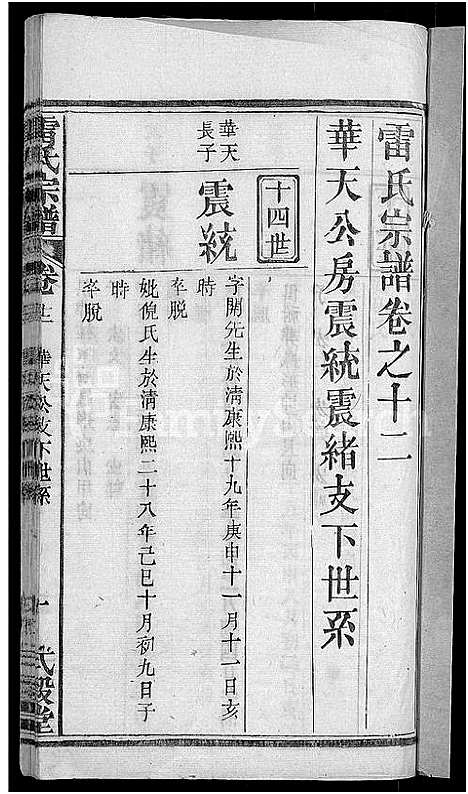 雷氏宗譜卷之十二
華天公房震統震緒支下世系
十四世
華天長子
震統
字開先生於清康熙十九年庚申十一月十一日亥
時
卒脱
妣倪氏生於清康熙二十八年己巳十月初九日子
時
卒脱
雷氏宗譜
卷
華天公支下世系
一